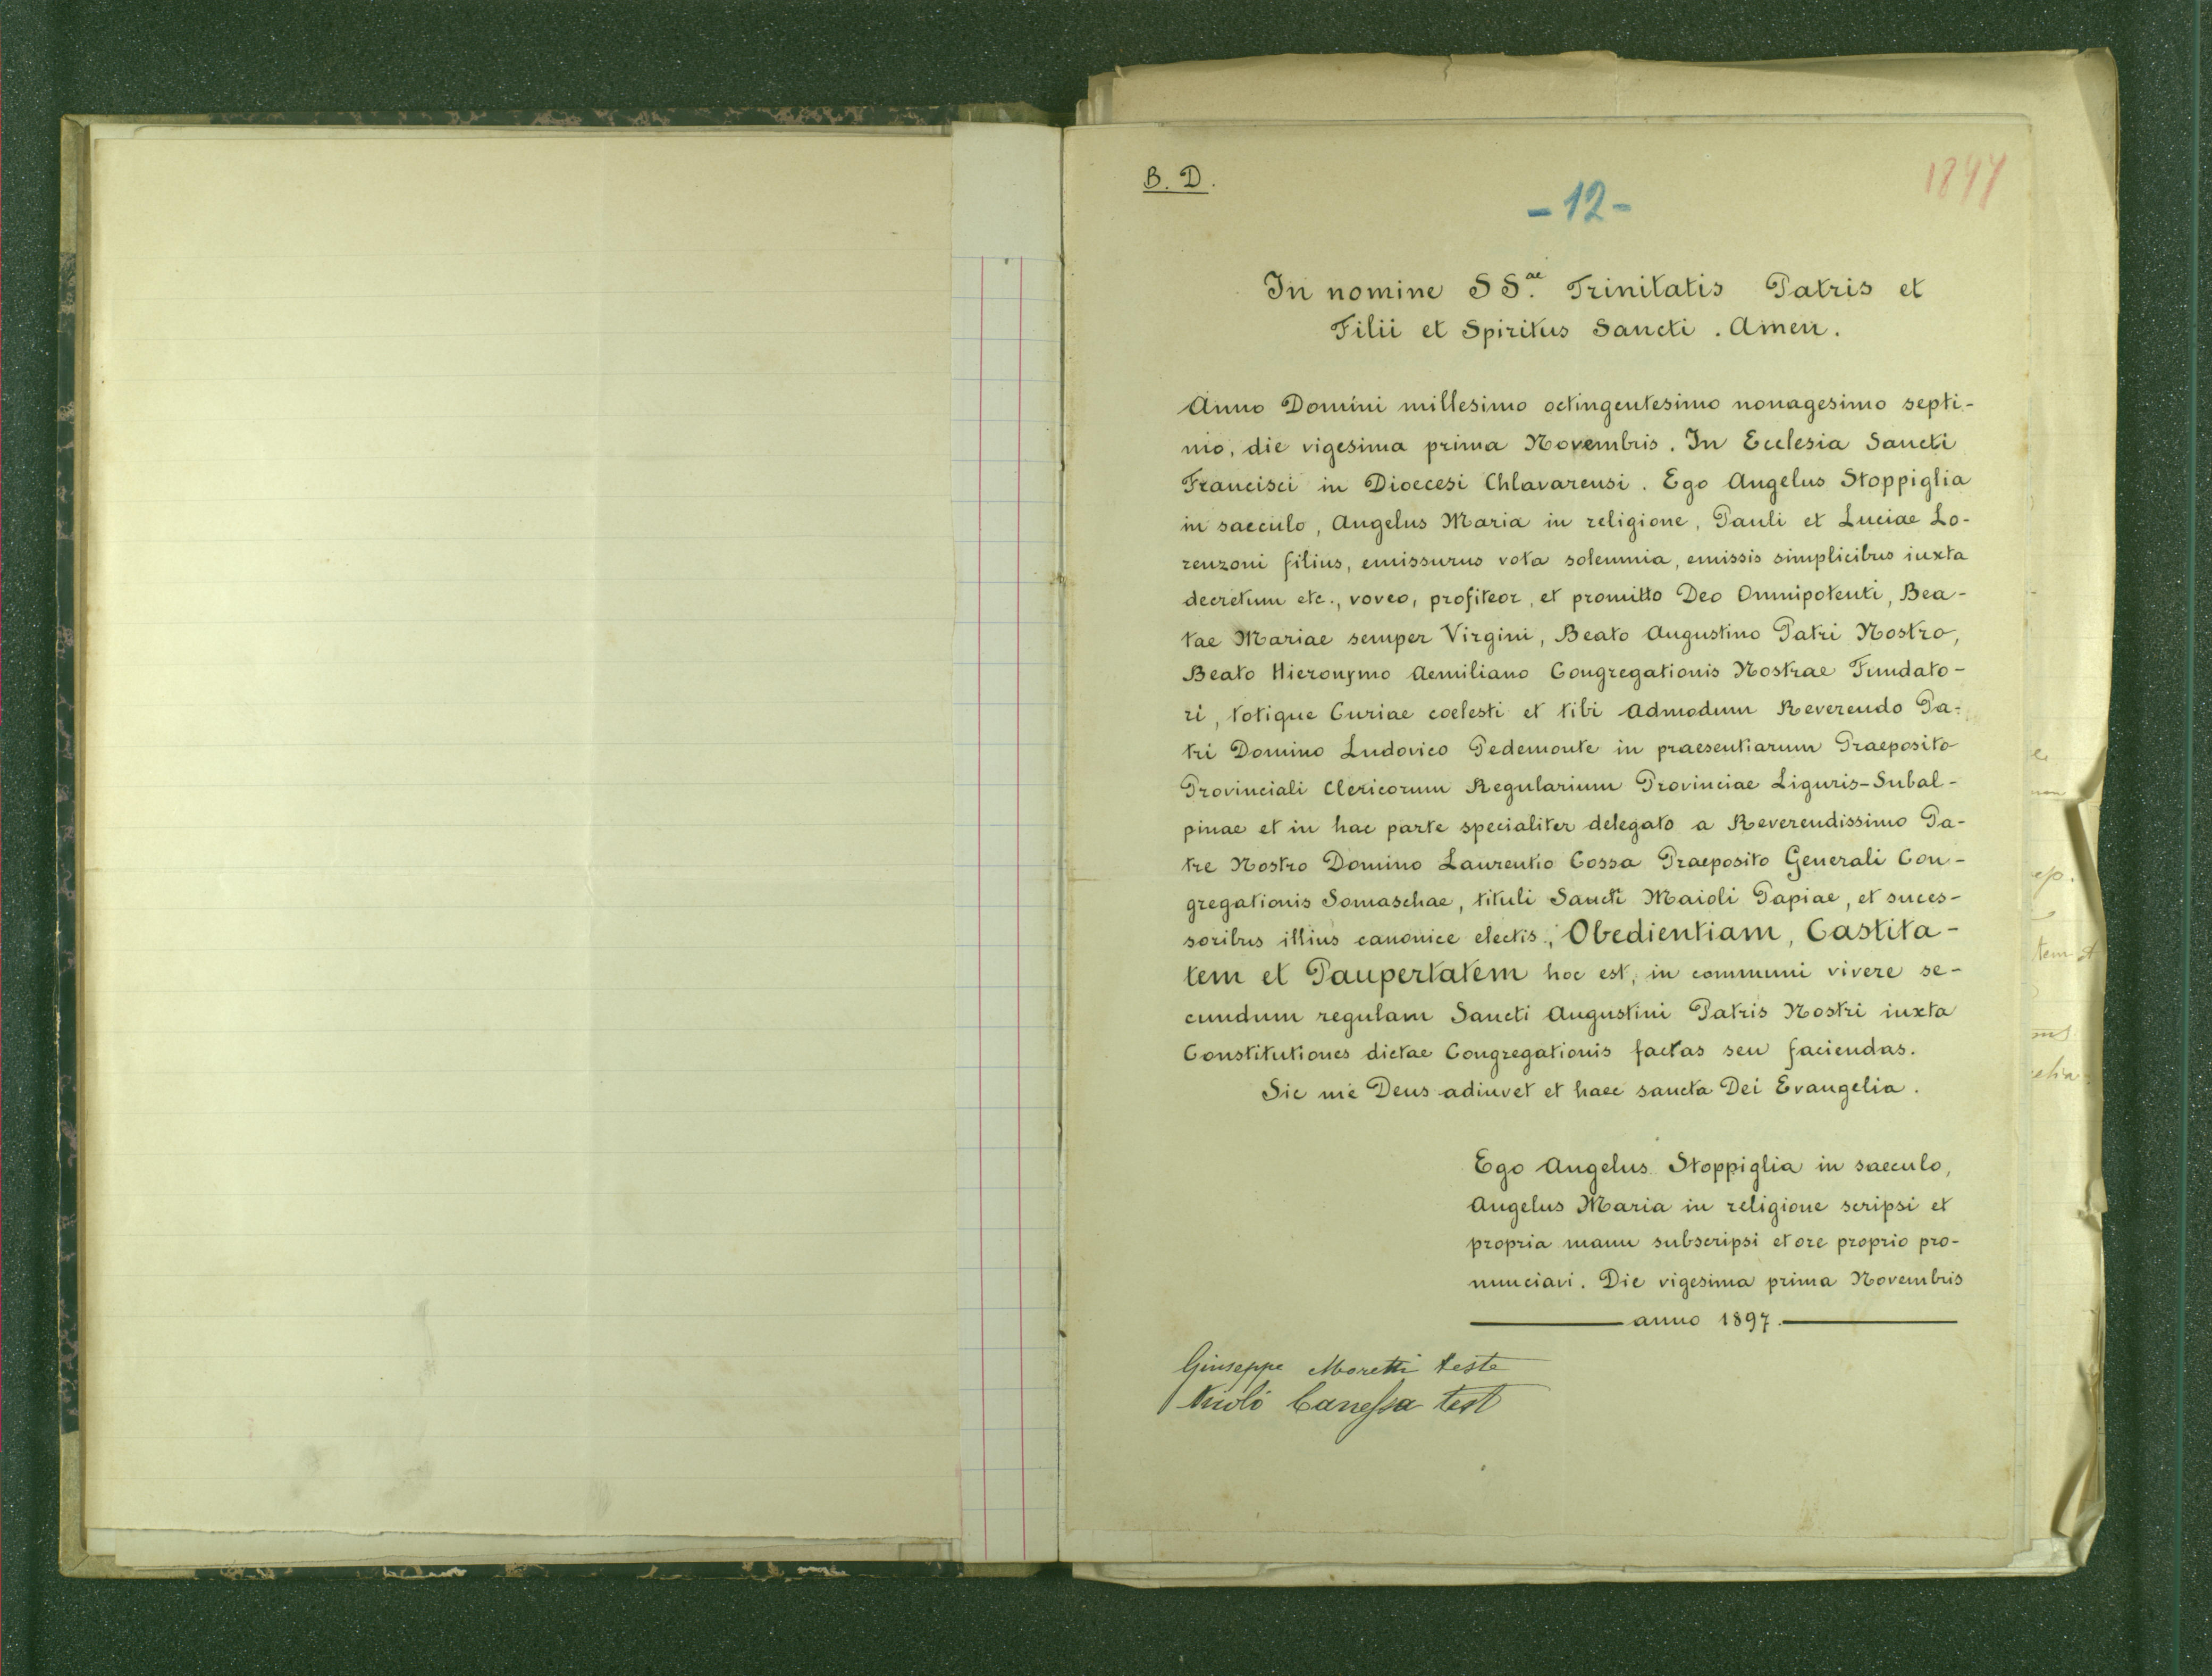 B. D.
- 12 -
1897
In nomine SS.ae Trinitatis Patris et
Filii et Spiritus Sancti. Amen.
Anno Domini millesimo octingentesimo nonagesimo septi-
mo, die vigesima prima Novembris. In Ecclesia Sancti
Francisci in Dioecesi Chlavarensi. Ego Angelus Stoppiglia
in saeculo, Angelus Maria in religione, Pauli et Luciae Lo-
renzoni filius, emissurus vota solemnia, emissis simplicibus iuxta
decretum etc., voveo, profiteor, et promitto Deo Omnipotenti, Bea-
tae Mariae semper Virgini, Beato Augustino Patri Nostro,
Beato Hieronymo Aemiliano Congregationis Nostrae Fundato-
ri, totique Curiae coelesti et tibi Admodum Reverendo Pa-
tri Domino Ludovico Pedemonte in praesentiarum Praeposito
Provinciali Clericorum Regularium Provinciae Liguris-Subal-
pinae et in hac parte specialiter delegato a Reverendissimo Pa-
tre Nostro Domino Laurentio Cossa Praeposito Generali Con-
gregationis Somaschae, tituli Sancti Maioli Papiae, et suces-
soribus illius canonice electis, Obedientiam, Castita-
tem et Paupertatem hoc est, in communi vivere se-
cundum regulam Sancti Augustini Patris Nostri iuxta
Constitutiones dictae Congregationis factas seu faciendas.
Sic me Deus adiuvet et haec sancta Dei Evangelia.
Ego Angelus Stoppiglia in saeculo,
Angelus Maria in religione scripsi et
propria manu subscripsi et ore proprio pro-
nunciavi. Die vigesima prima Novembris
anno 1897.
Giuseppe Moretti teste
Nicolò Canessa test